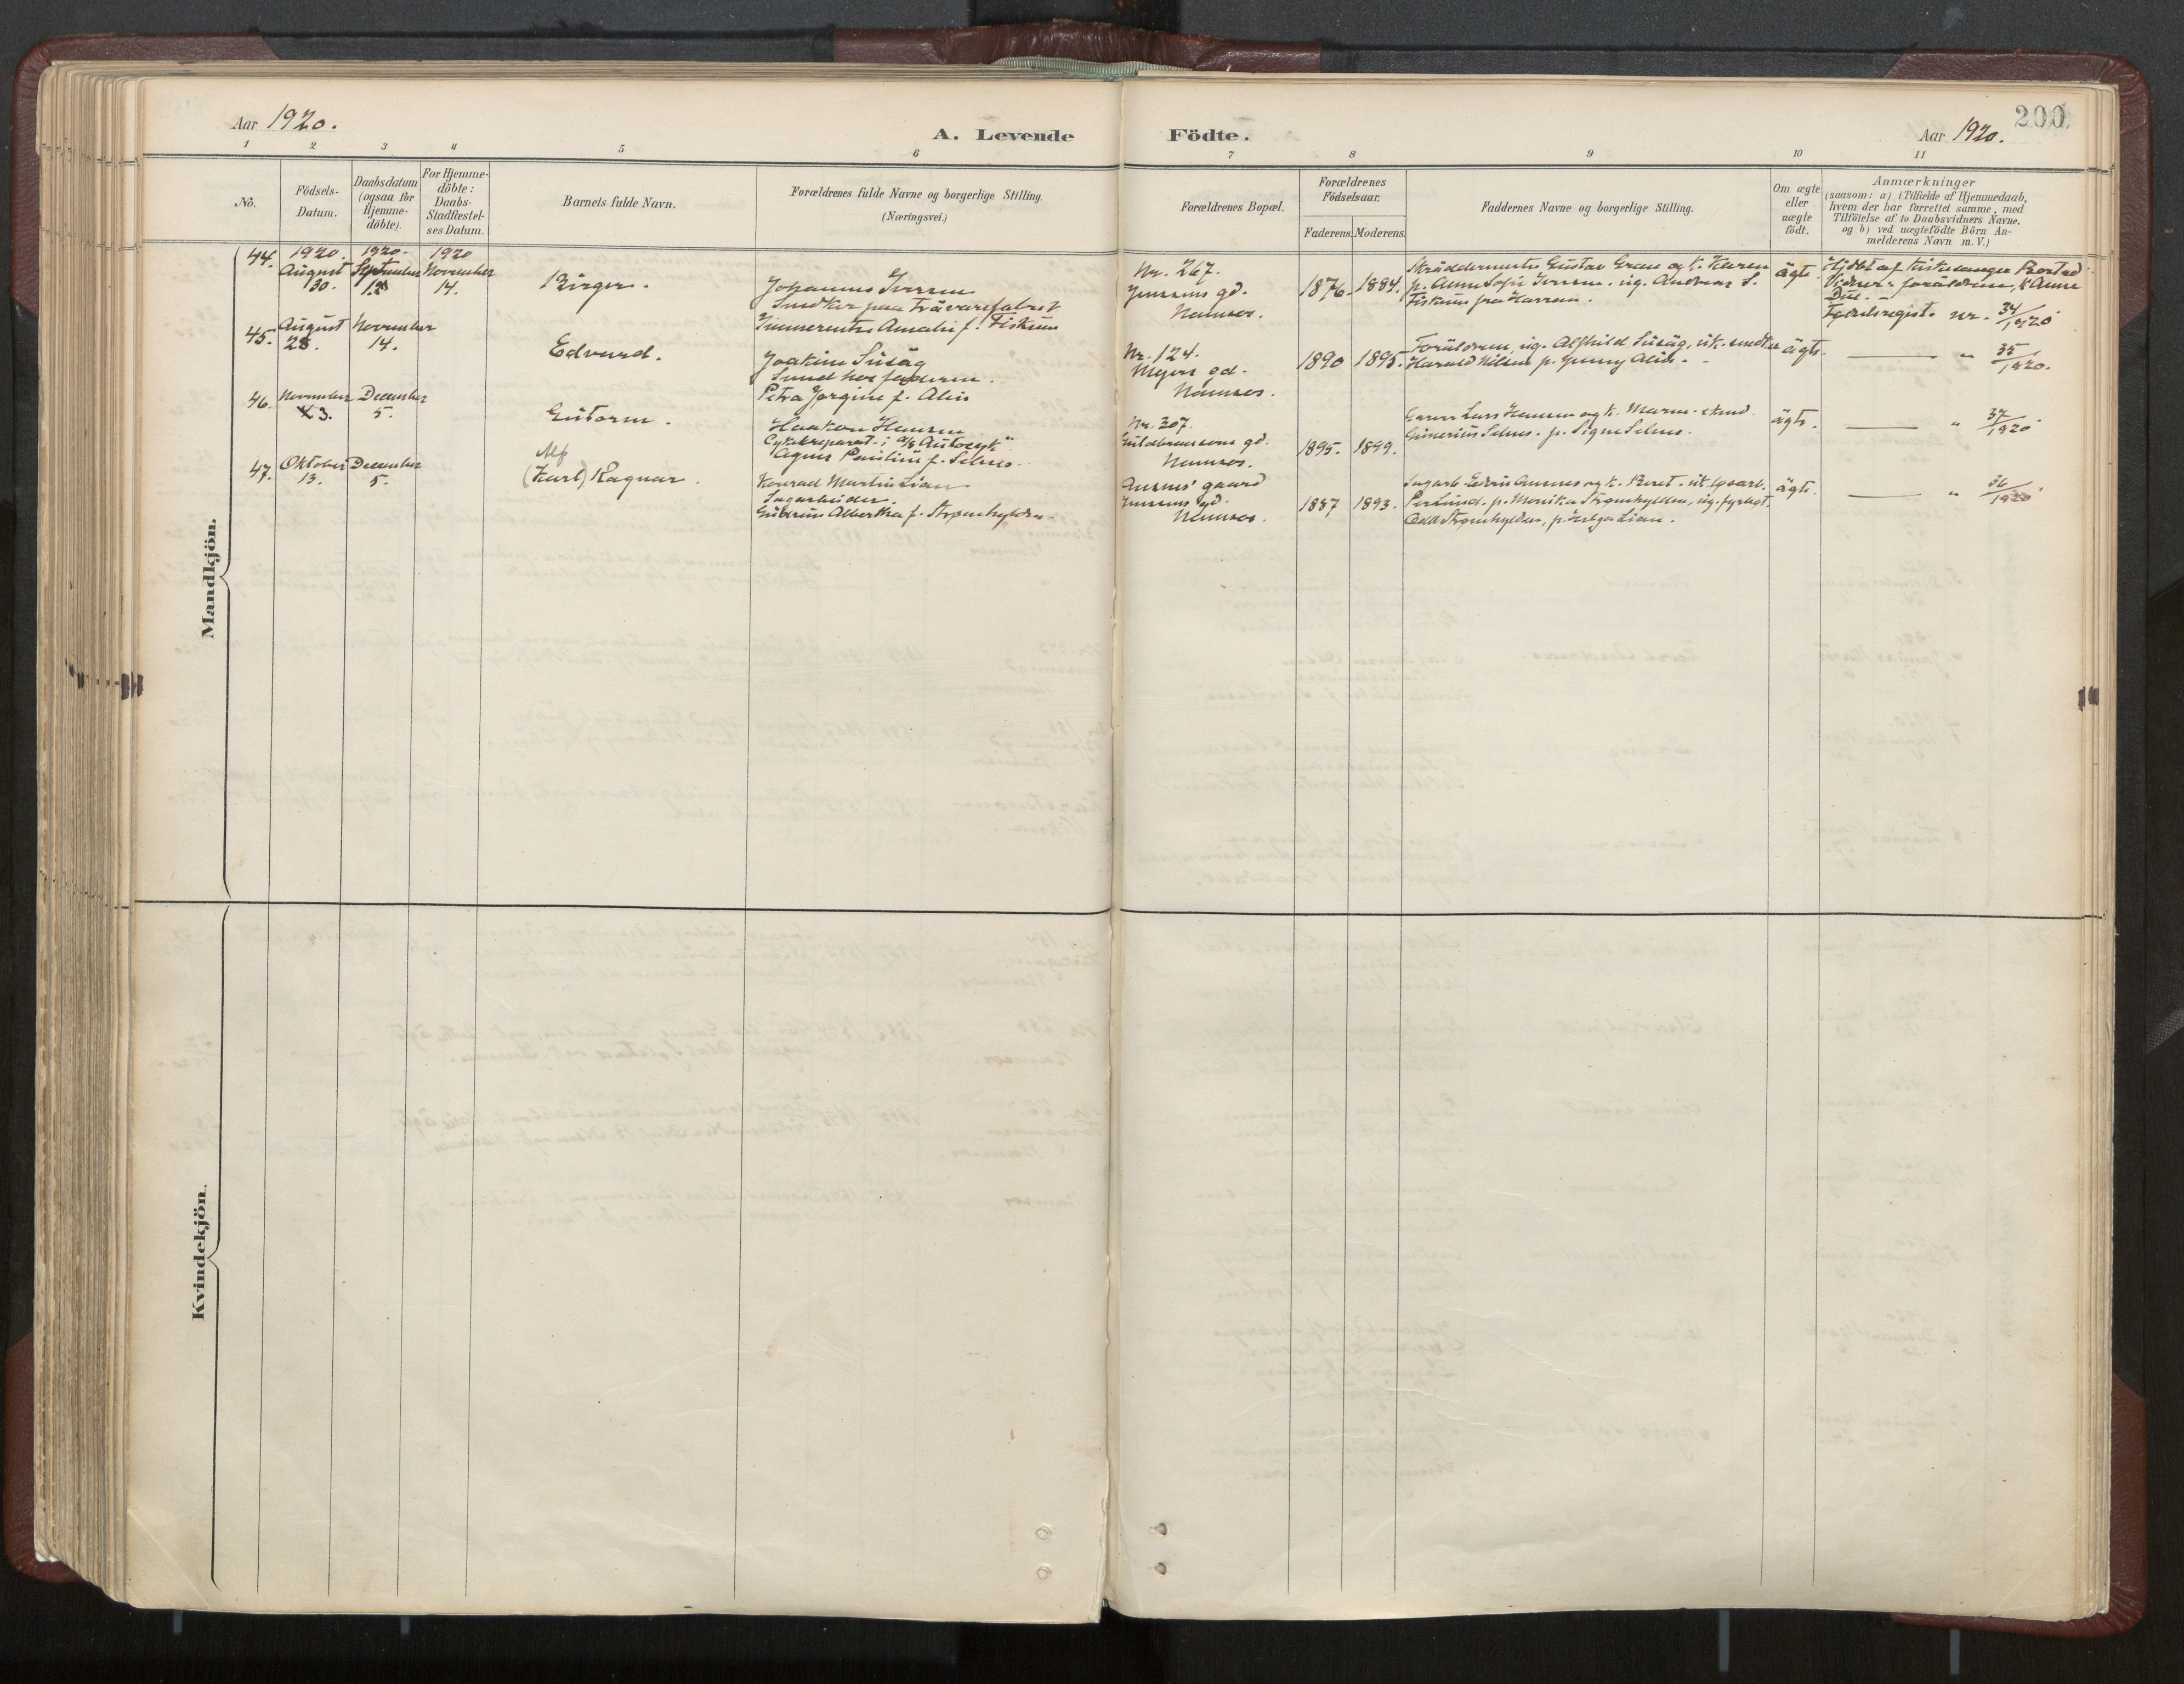 200
Aar 1920.
A. Levende Födte.
Aar 1920.
1 2 3 4 5 6 7 8 9 10 11
No.
Födsels-Datum.
Daabsdatum (ogsaa for Hjemme-döbte).
For Hjemme-döbte: Daabs-Stadfestel-ses Datum.
Barnets fulde Navn.
Forældrenes fulde Navne og borgerlige Stilling. (Næringsvei.)
Forældrenes Bopæl.
Forældrenes Födselsaar.
Faderens. Moderens.
Faddernes Navne og borgerlige Stilling.
Om ægte eller uægte födt.
Anmærkninger
(saasom: a) i Tilfælde af Hjemmedaab,
hvem der har forrettet samme, med
Tilföielse af to Daabsvidners Navne,
og b) ved uægtefödte Börn An-
melderens Navn m. V.)
Mandkjön.
44. 1920. August 30.
1920. September 12
1920 November 14.
Birger.
Johannes Iversen
Snedker paa Trävarefabrik
Amalie f. Fiskum
Nr. 267.
Jensens gd.
Namsos.
1876. 1884.
Gustav Gran og k. Karen
p. Anna Sofie Iversen. ug. Andreas S.
Fiskum fra Harran.
ägte.
Hjdbt af kirkesanger Rostad
Vidner: foräldrene, k Anne
Due.
Fødselsregist. nr. 34/1920
45. August 28.
November 14.
Edvard.
Joakim Süsäg
Smed hos faderen.
Petra Jørgine f. Alin
Nr. 124.
Meyers gd.
Namsos.
1890 1895.
Foräldrene, ug. Alfhild Süsäg, uk. snedker
Harald Nilsen p. Jenny Alin.
ägte.
" 35/1920.
46. November 3.
December 5.
Guttorm.
Haakon Hansen
Cykkelreparat. i a/s "Autocyk"
Agnes Pauline f. Selnes.
Nr. 307.
Guldbransens gd.
Namsos.
1895. 1899.
Lars Hansen og k. Maren.
Gunerius Selnes. p. Signe Selnes.
ägte.
" 37/1920
47. Oktober 13.
December 5.
Alf
(Karl) Ragnar.
Konrad Martin Lian
Sagarbeider.
Albertha f. Strømhylden.
Ausnes' gaard
Jensens gd.
Namsos.
1887 1893.
Sagarb. Edvin Ausnes og k. Beret.
Per Lund. p. Monika Strømhylden, ug. fyrbøt.
Odd Strømhylden, p. Helga Lian.
ägte.
" 36/1920
Kvindekjön.